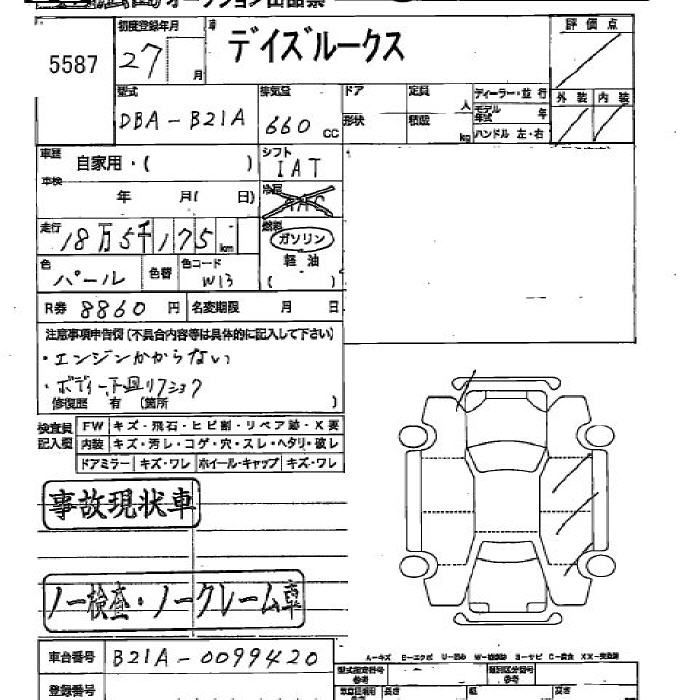 オークション出品票
5587 初度登録年月 27 月 車 デイズルークス 評価点
型式 DBA-B21A 排気量 660 CC ドア 形状 定員 人 積載 kg ディーラー・並行 モデル年式 年 ハンドル 左・右 外装 内装
車歴 自家用・( ) シフト IAT
車検 年 月( 日) 冷房 AAC
走行 18万5千175km 燃料 ガソリン 軽油 ( )
色 パール 色替 色コード W13
R券 8860円 名変期限 月 日
注意事項申告欄(不具合内容等は具体的に記入して下さい)
・エンジンかからない
・ボディー下凹リアショク
修復歴 有 (箇所 )
検査員記入欄 FW キズ・飛石・ヒビ割・リペア跡・X要
内装 キズ・汚レ・コゲ・穴・スレ・ヘタリ・破レ
ドアミラー キズ・ワレ ホイール・キャップ キズ・ワレ
事故現状車
ノー検査・ノークレーム車
A-キズ E-エクボ
車台番号 B21A-0099420 型式指定番号 参考 類別区分番号 参考
登録番号 長さ 幅 高さ